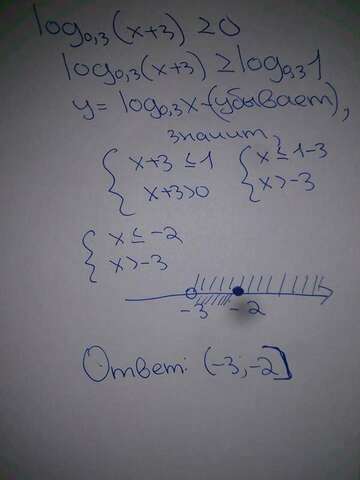 log₀,₃(x+3) ≥0
log₀,₃(x+3) ≥log₀,₃1
y = log₀,₃x-(убывает),
значит
{ x+3 ≤ 1 { x ≤ 1-3
{ x+3>0 { x>-3
{ x ≤ -2
{ x>-3
-3 -2
Ответ: (-3; -2]